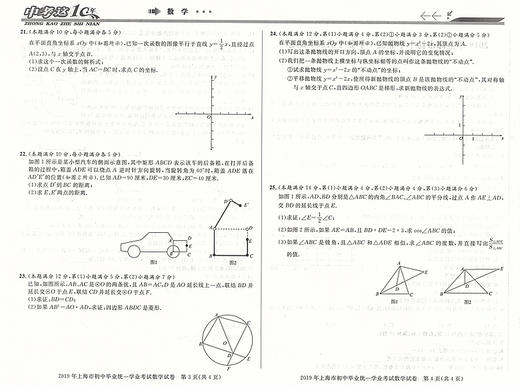 中考这10年
ZHONG KAO ZHE SHI NIAN
数学
21.(本题满分10分,每小题满分各5分)
在平面直角坐标系xOy中(如图所示),已知一次函数的图像平行于直线y=1/2x,且经过点
A(2,3),与x轴交于点B.
(1)求这个一次函数的解析式;
(2)设点C在y轴上,当AC=BC时,求点C的坐标.
22.(本题满分10分,每小题满分各5分)
如图1所示是某小型汽车的侧面示意图,其中矩形ABCD表示该车的后备箱,在打开后备
箱的过程中,箱盖ADE可以绕点A逆时针方向旋转,当旋转角为60°时,箱盖ADE落在
AD′E′的位置(如图2所示).已知AD=90厘米,DE=30厘米,EC=40厘米.
(1)求点D′到BC的距离;
(2)求E、E′两点的距离.
图1
图2
23.(本题满分12分,第(1)小题满分5分,第(2)小题满分7分)
已知:如图所示,AB、AC是⊙O的两条弦,且AB=AC,D是AO延长线上一点,联结BD并
延长交⊙O于点E,联结CD并延长交⊙O于点F.
(1)求证:BD=CD;
(2)如果AB²=AO·AD,求证:四边形ABDC是菱形.
2019年上海市初中毕业统一学业考试数学试卷 第3页(共4页)
24.(本题满分12分,第(1)小题满分4分,第(2)①小题满分3分,第(2)②小题满分5分)
在平面直角坐标系xOy中(如图所示),已知抛物线y=x²-2x,其顶点为A.
(1)写出这条抛物线的开口方向、顶点A的坐标,并说明它的变化情况;
(2)我们把一条抛物线上横坐标与纵坐标相等的点叫做这条抛物线的“不动点”.
①试求抛物线y=x²-2x的“不动点”的坐标;
②平移抛物线y=x²-2x,使所得新抛物线的顶点B是该抛物线的“不动点”,其对称轴
与x轴交于点C,且四边形OABC是梯形,求新抛物线的表达式.
25.(本题满分14分,第(1)小题满分4分,第(2)小题满分4分,第(3)小题满分6分)
如图1所示,AD、BD分别是△ABC的内角∠BAC、∠ABC的平分线,过点A作AE⊥AD,
交BD的延长线于点E.
(1)求证:∠E=1/2∠C;
(2)如图2所示,如果AE=AB,且BD:DE=2:3,求cos∠ABC的值;
(3)如果∠ABC是锐角,且△ABC和△ADE相似,求∠ABC的度数,并直接写出S△ADE/S△ABC
的值.
图1
图2
2019年上海市初中毕业统一学业考试数学试卷 第4页(共4页)